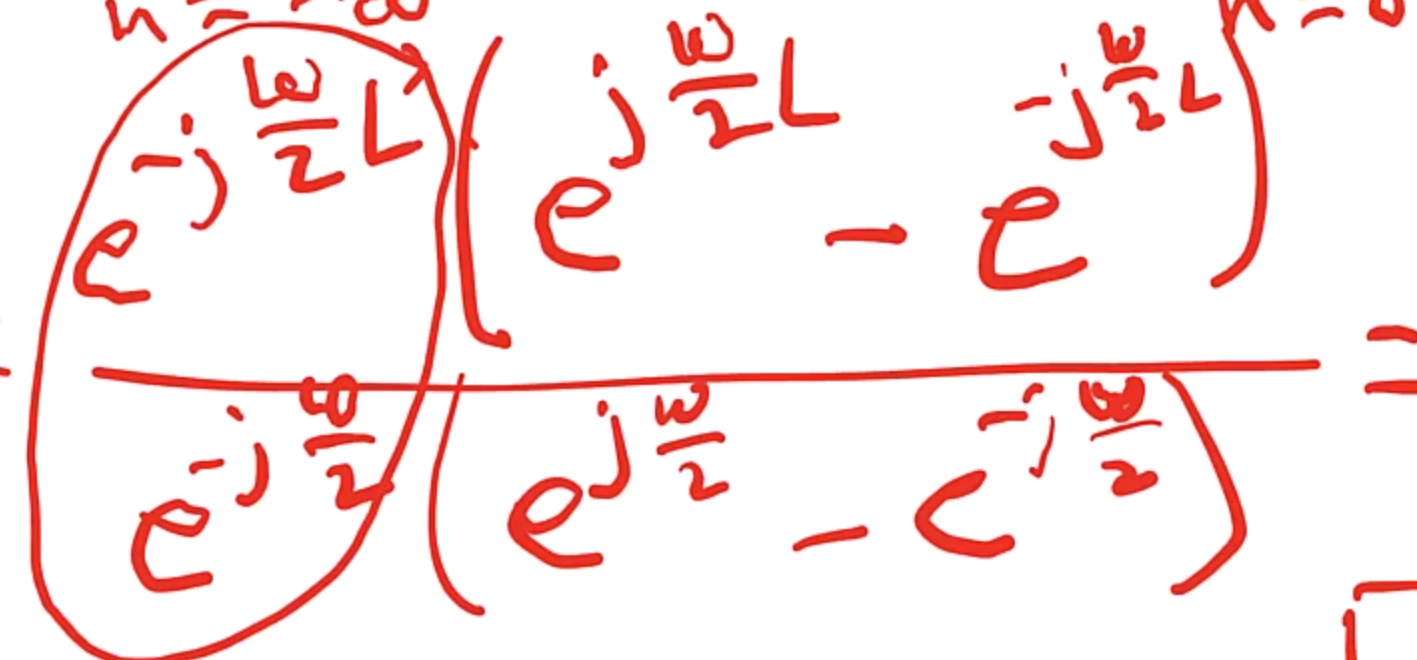 n = -∞ n = 0
e^{-j\frac{ω}{2}L} (e^{j\frac{ω}{2}L} - e^{-j\frac{ω}{2}L})
——— =
e^{-j\frac{ω}{2}} (e^{j\frac{ω}{2}} - e^{-j\frac{ω}{2}})